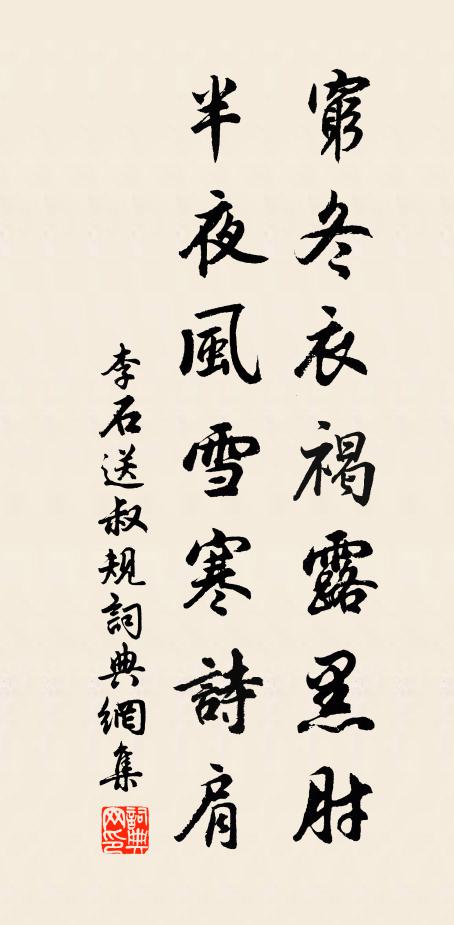 窮冬衣褐露黑肘
半夜風雪寒詩肩
李石送叔規詞典網集
詞典网印